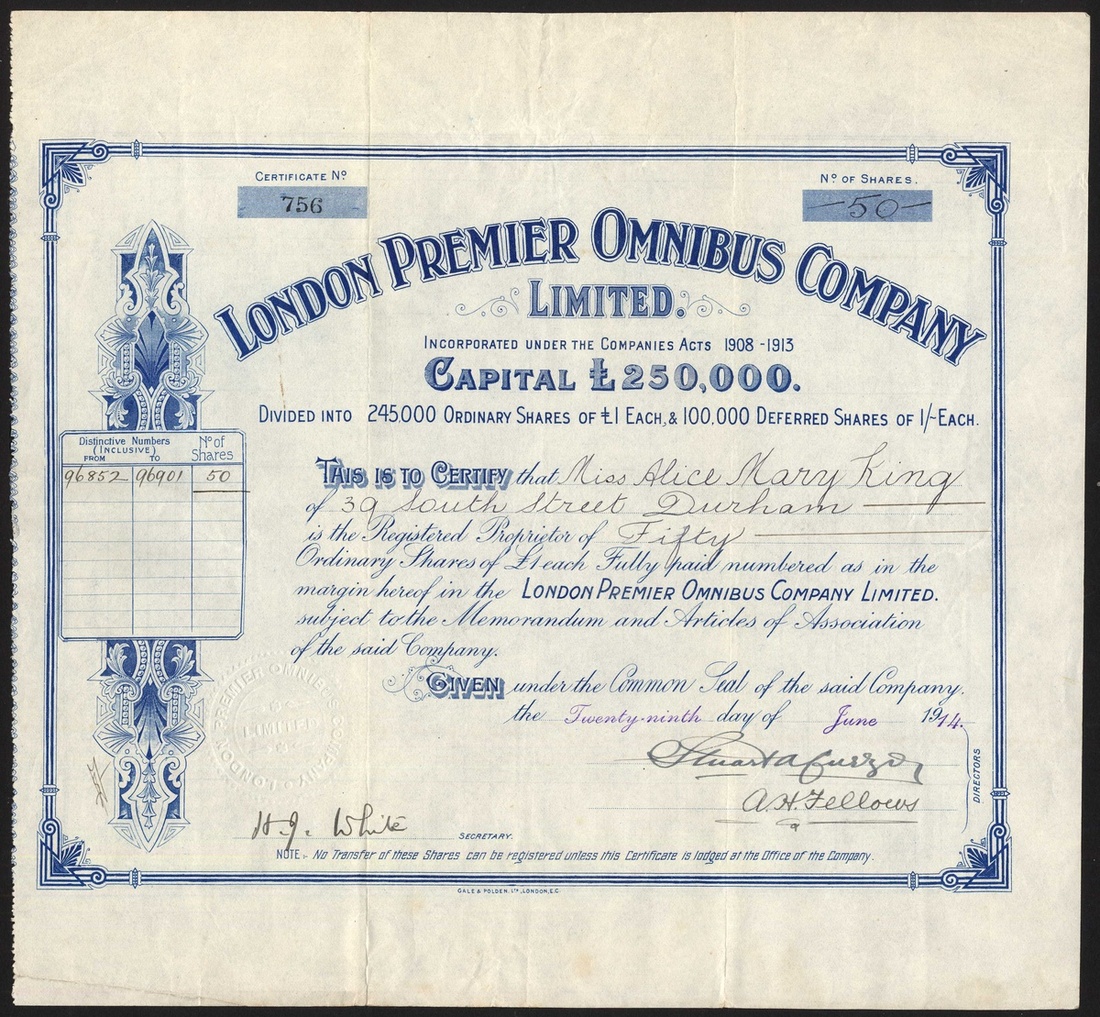 CERTIFICATE Nº
756
Nº OF SHARES.
—50—
LONDON PREMIER OMNIBUS COMPANY
LIMITED.
INCORPORATED UNDER THE COMPANIES ACTS 1908-1913
CAPITAL £250,000.
DIVIDED INTO 245,000 ORDINARY SHARES OF £1 EACH, & 100,000 DEFERRED SHARES OF 1/- EACH.
Distinctive Numbers (INCLUSIVE) Nº of Shares
FROM TO
96852 96901 50
THIS IS TO CERTIFY that Miss Alice Mary King
of 39 South Street Durham
is the Registered Proprietor of Fifty
Ordinary Shares of £1 each Fully paid numbered as in the
margin hereof in the LONDON PREMIER OMNIBUS COMPANY LIMITED.
subject to the Memorandum and Articles of Association
of the said Company.
GIVEN under the Common Seal of the said Company.
the Twenty-ninth day of June 1914.
LONDON PREMIER OMNIBUS COMPANY
LIMITED
Stuart A Curzon
A.H. Fellows
DIRECTORS
H.J. White
SECRETARY.
NOTE:- No Transfer of these Shares can be registered unless this Certificate is lodged at the Office of the Company.
GALE & POLDEN, LTD., LONDON, E.C.